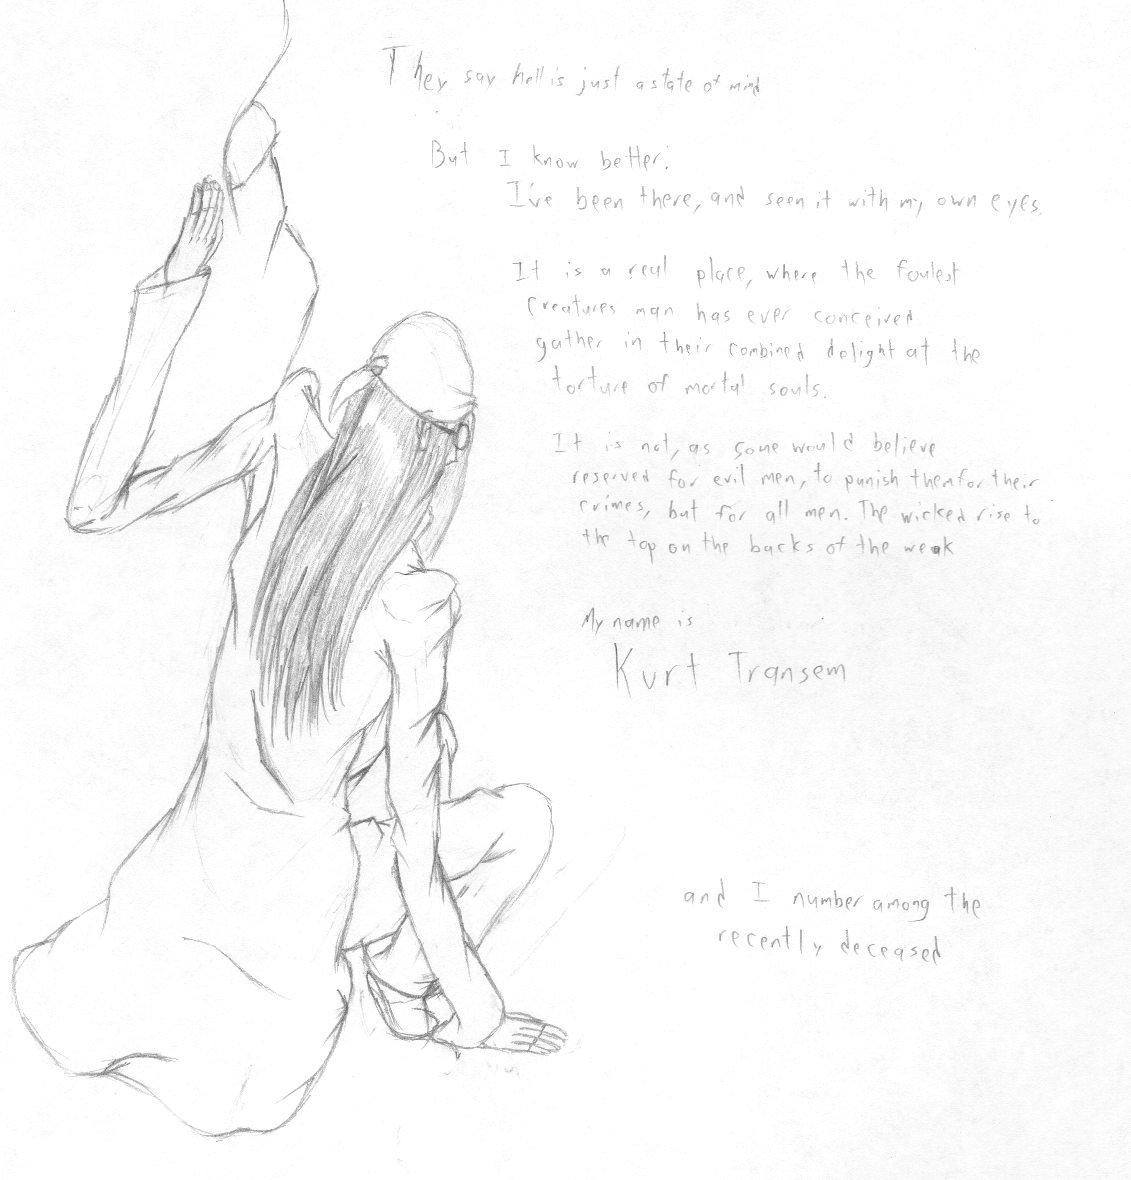 They say hell is just a state of mind
But I know better.
I've been there, and seen it with my own eyes.
It is a real place, where the foulest
creatures man has ever conceived
gather in their combined delight at the
torture of mortal souls.
It is not, as some would believe
reserved for evil men, to punish them for their
crimes, but for all men. The wicked rise to
the top on the backs of the weak
My name is
Kurt Transem
and I number among the
recently deceased